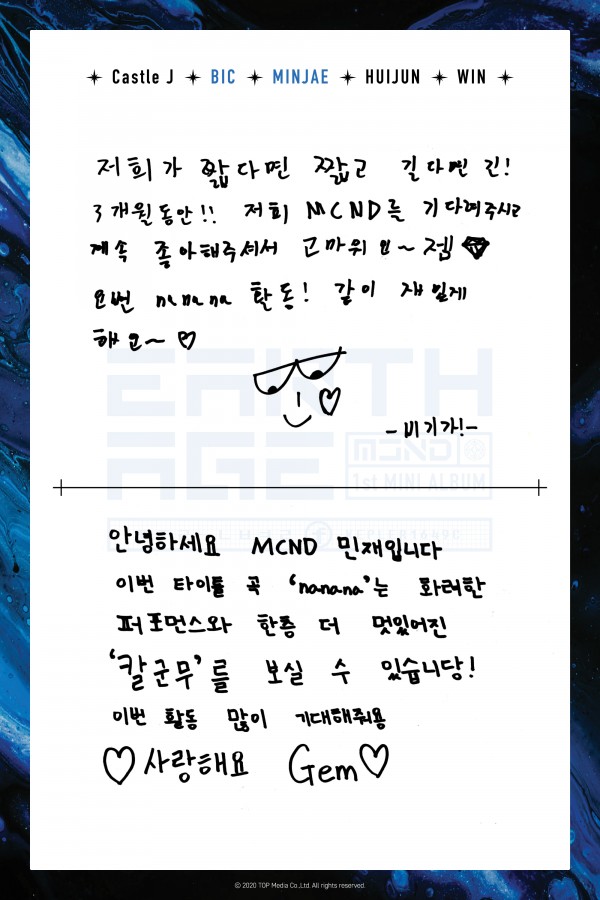 Castle J BIC MINJAE HUIJUN WIN
저희가 짧다면 짧고 길다면 긴!
3개월동안!! 저희 MCND를 기다려주시고
계속 좋아해주셔서 고마워요~ 젬
요번 nanana 활동! 같이 재밌게
해요~ ♡
-비기가!-
EARTH
AGE
MCND
1st MINI ALBUM
안녕하세요 MCND 민재입니다
이번 타이틀 곡 'nanana'는 화려한
퍼포먼스와 한층 더 멋있어진
'칼군무'를 보실 수 있습니당!
이번 활동 많이 기대해줘용
♡사랑해요 Gem♡
© 2020 TOP Media Co.,Ltd. All rights reserved.